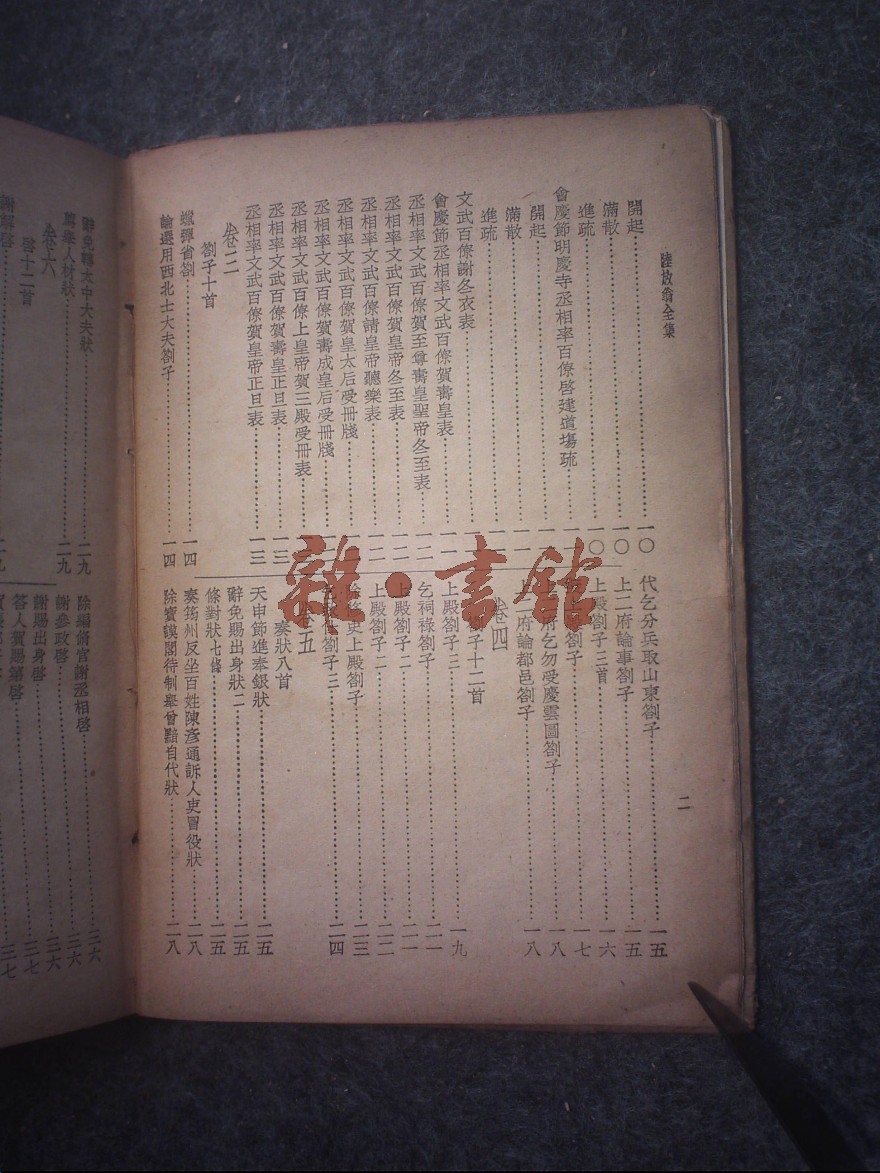 陸放翁全集
二
開起……一〇
滿散……一〇
進疏……一〇
會慶節明慶寺丞相率百僚啓建道場疏……
開起……
滿散……
進疏……
文武百僚謝冬衣表……
會慶節丞相率文武百僚賀壽皇表……
丞相率文武百僚賀至尊壽皇聖帝冬至表……一二
丞相率文武百僚賀皇帝冬至表……一二
丞相率文武百僚請皇帝聽樂表……一二
丞相率文武百僚賀皇太后受冊牋……
丞相率文武百僚賀壽成皇后受冊牋……
丞相率文武百僚上皇帝賀三殿受冊表……
丞相率文武百僚賀壽皇正旦表……一三
丞相率文武百僚賀皇帝正旦表……一三
卷三
劄子十首
蠟彈省劄……一四
論選用西北士大夫劄子……一四
代乞分兵取山東劄子……一五
上二府論事劄子……一五
上殿劄子三首……一六
劄子……一七
府乞勿受慶雲圖劄子……一八
二府論都邑劄子……一八
卷四
劄子十二首
上殿劄子三……一九
乞祠祿劄子……二一
上殿劄子二……二一
上殿劄子二……二二
史上殿劄子……二三
劄子三……二四
卷五
奏狀八首
天申節進奉銀狀……二五
辭免賜出身狀二……二五
條對狀七條……二五
奏筠州反坐百姓陳彥通訴人吏冒役狀……二八
除寶謨閣待制舉曾黯自代狀……二八
辭免轉太中大夫狀……二九
薦舉人材狀……二九
卷六
啓十二首
謝解啓……二九
除編脩官謝丞相啓……三六
謝參政啓……三六
謝賜出身啓……三六
答人賀賜第啓……三七
雜·書館